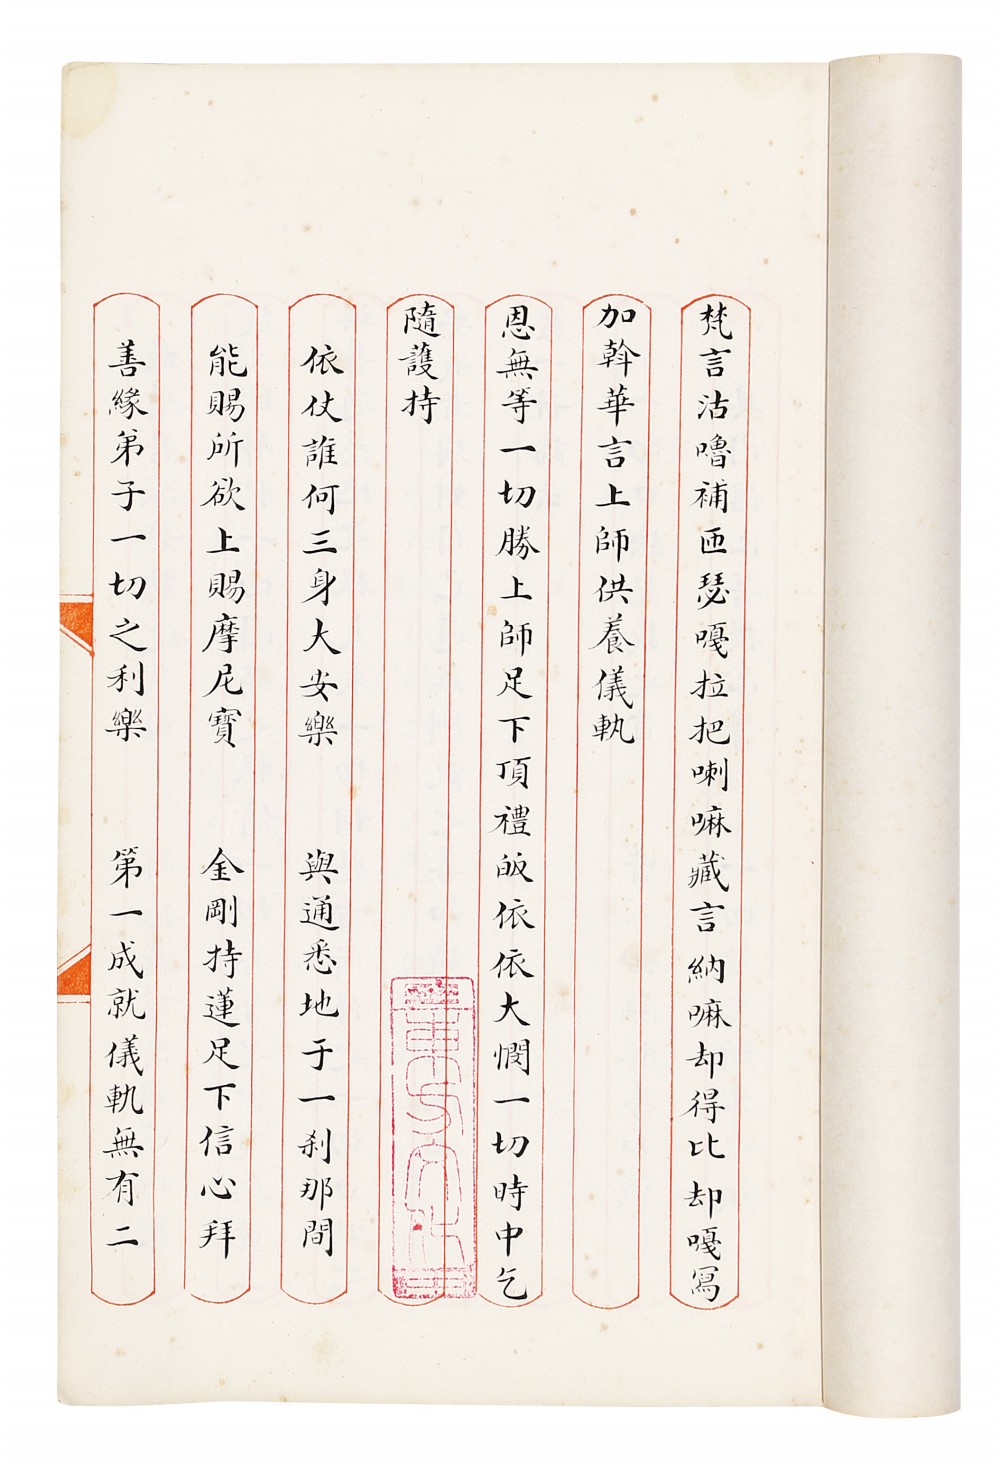 梵言沽嚕補匝瑟嘎拉把喇嘛藏言納嘛却得比却嘎寫
加斡華言上師供養儀軌
恩無等一切勝上師足下頂禮皈依依大憫一切時中乞
隨護持
依仗誰何三身大安樂　與通悉地于一刹那間
能賜所欲上賜摩尼寶　金剛持蓮足下信心拜
善緣弟子一切之利樂　第一成就儀軌無有二